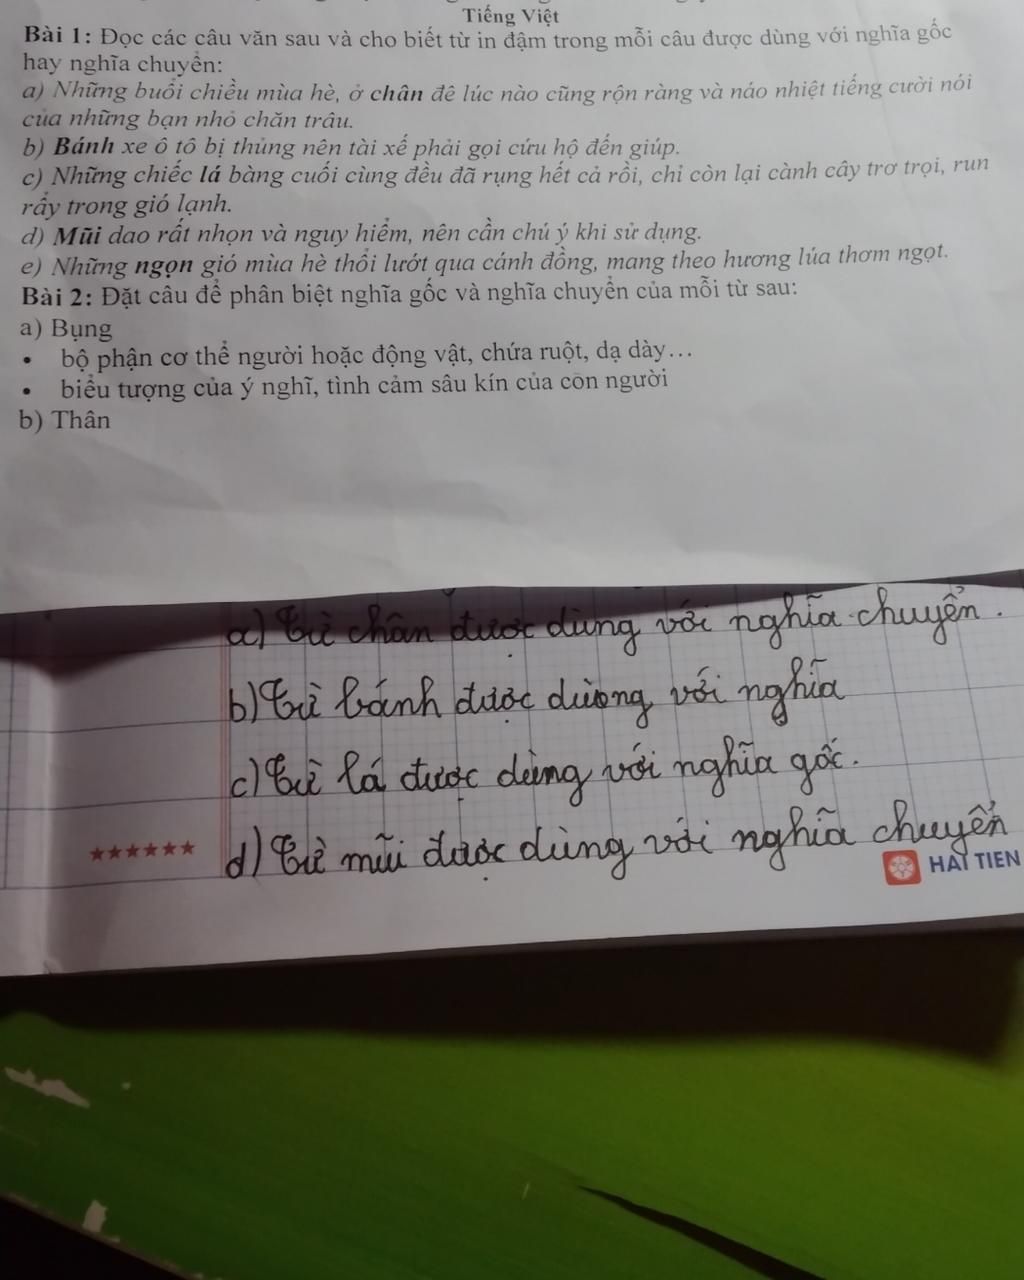 Tiếng Việt
Bài 1: Đọc các câu văn sau và cho biết từ in đậm trong mỗi câu được dùng với nghĩa gốc
hay nghĩa chuyển:
a) Những buổi chiều mùa hè, ở chân đê lúc nào cũng rộn ràng và náo nhiệt tiếng cười nói
của những bạn nhỏ chăn trâu.
b) Bánh xe ô tô bị thủng nên tài xế phải gọi cứu hộ đến giúp.
c) Những chiếc lá bàng cuối cùng đều đã rụng hết cả rồi, chỉ còn lại cành cây trơ trọi, run
rẩy trong gió lạnh.
d) Mũi dao rất nhọn và nguy hiểm, nên cần chú ý khi sử dụng.
e) Những ngọn gió mùa hè thổi lướt qua cánh đồng, mang theo hương lúa thơm ngọt.
Bài 2: Đặt câu để phân biệt nghĩa gốc và nghĩa chuyển của mỗi từ sau:
a) Bụng
• bộ phận cơ thể người hoặc động vật, chứa ruột, dạ dày…
• biểu tượng của ý nghĩ, tình cảm sâu kín của con người
b) Thân
a) từ chân được dùng với nghĩa chuyển.
b) từ bánh được dùng với nghĩa
c) từ lá được dùng với nghĩa gốc.
d) từ mũi được dùng với nghĩa chuyển
HẢI TIẾN